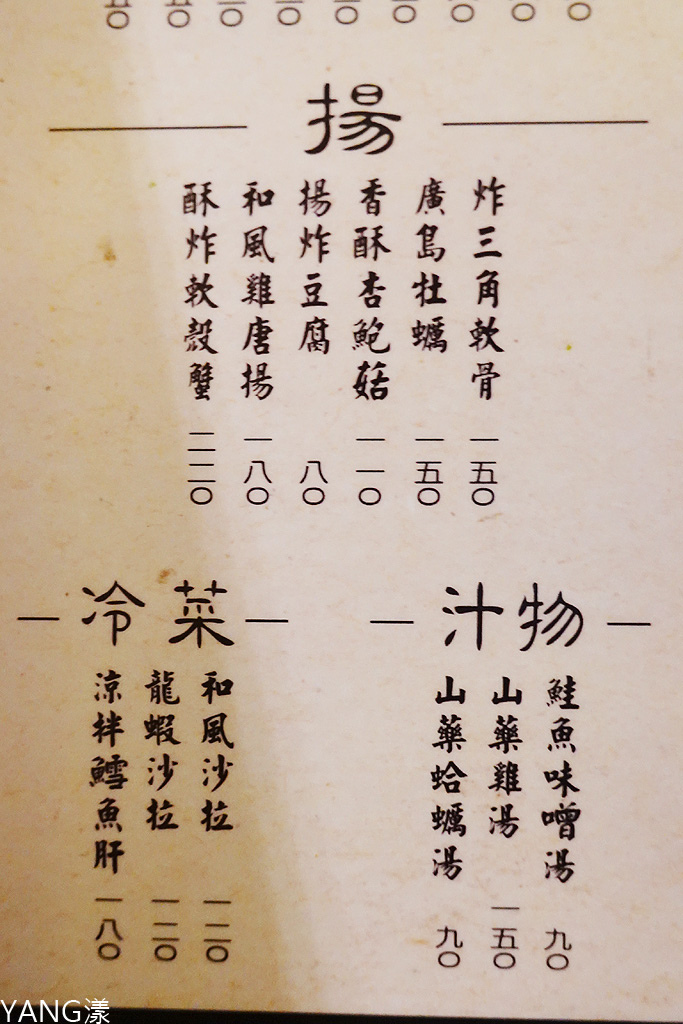 揚
炸三角軟骨 一五〇
廣島牡蠣 一五〇
香酥杏鮑菇 一一〇
揚炸豆腐 八〇
和風雞唐揚 一八〇
酥炸軟殼蟹 二二〇
汁物
鮭魚味噌湯 九〇
山藥雞湯 一五〇
山藥蛤蠣湯 九〇
冷菜
和風沙拉 一二〇
龍蝦沙拉 一二〇
涼拌鱈魚肝 一八〇
YANG漾